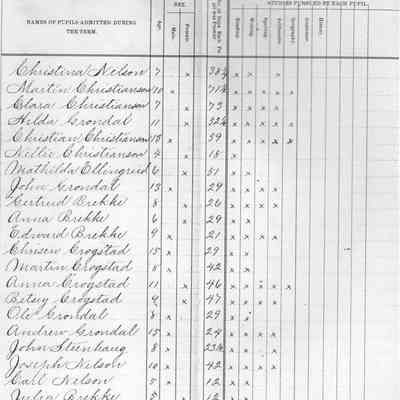 SEX.
STUDIES PURSUED BY EACH PUPIL.
NAMES OF PUPILS ADMITTED DURING THE TERM.
Age.
Male.
Female.
Reading.
Writing.
Spelling.
Arithmetic.
Geography.
Grammar.
History.
Christina Nelson 7 x x x
Martin Christianson 10 x x x x x
Clara Christianson 7 x 73 x x x x
Hilda Grondal 11 x x x x x x
Christian Christianson 13 x 39 x x x x x
Nellie Christianson 4 x 18 x
Mathilda Ellingreid 6 x 51 x x
John Grondal 13 x 29 x x x x
Gertrud Brekke 8 x 26 x x x x
Anna Brekke 6 x 29 x x
Edward Brekke 9 x 21 x x x x
Chrisen Crogstad 15 x 29 x x
Martin Crogstad 8 x 42 x x
Anna Crogstad 11 x 46 x x x x x
Betsy Crogstad 9 x 47 x x x x
Ole Grondal 8 x 29 x x
Andrew Grondal 15 x 24 x x x x
John Steenhaug 8 x x x x x
Joseph Nelson 10 x 42 x x x x
Carl Nelson 5 x 12 x x
Julia Brekke 5 x 12 x x